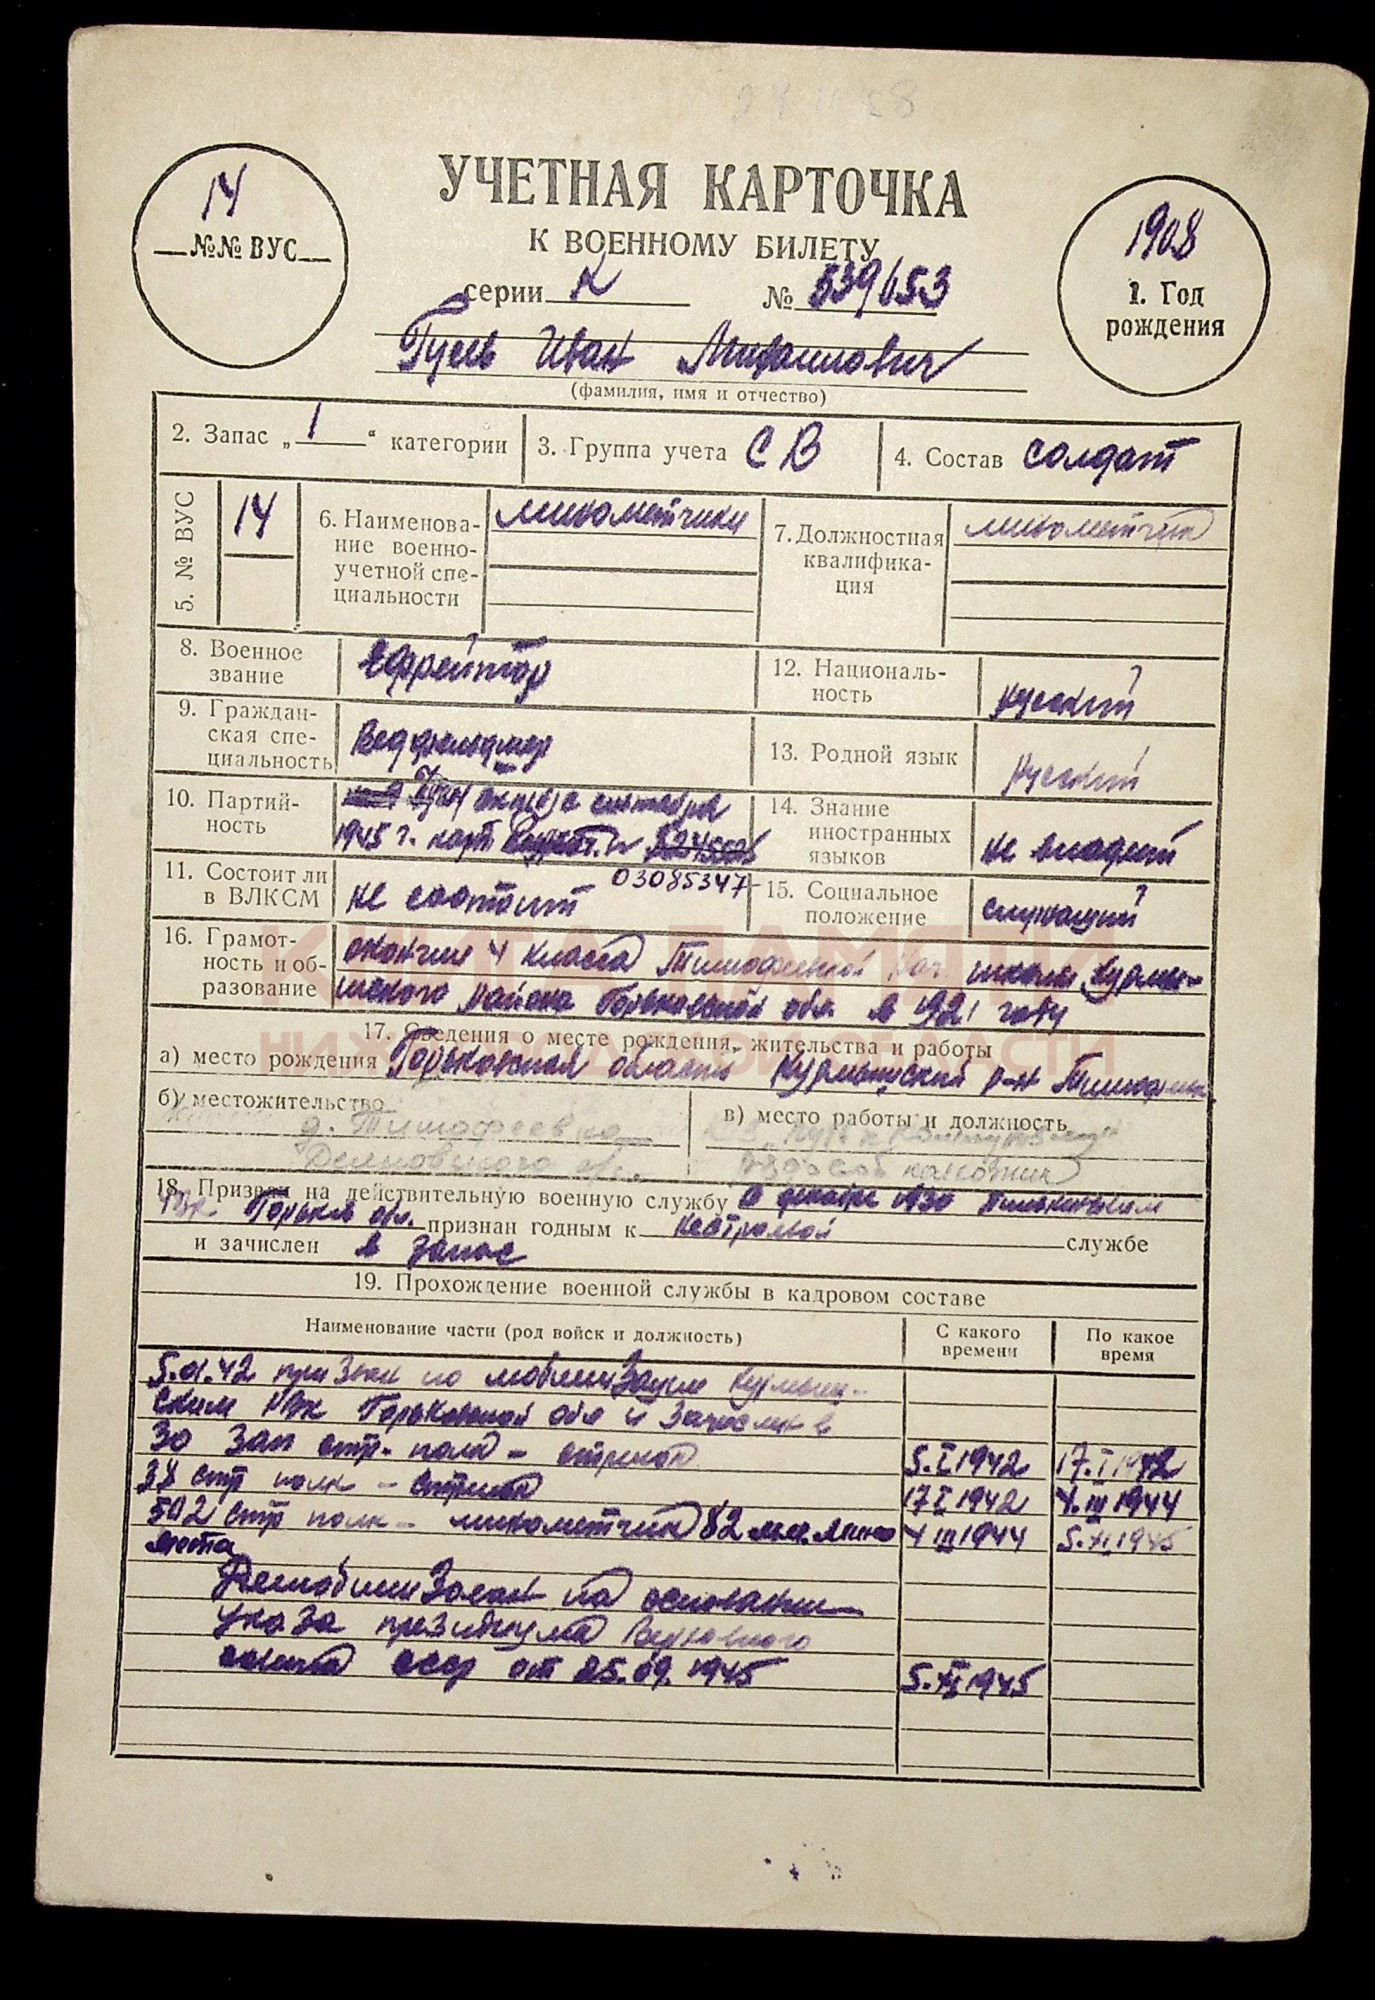 14
№№ ВУС
УЧЕТНАЯ КАРТОЧКА
К ВОЕННОМУ БИЛЕТУ
серии № 539653
1908
1. Год
рождения
Гусев Иван Михаилович
(фамилия, имя и отчество)
2. Запас „ 1 “ категории
3. Группа учета СВ
4. Состав солдат
5. № ВУС
14
6. Наименова-
ние военно-
учетной спе-
циальности
минометчики
7. Должностная
квалифика-
ция
минометчик
8. Военное
звание
Ефрейтор
12. Националь-
ность
русский
9. Граждан-
ская спе-
циальность
Ведфельдшер
13. Родной язык
русский
10. Партий-
ность
сентября
1945 г. карт
03085347
14. Знание
иностранных
языков
не владеет
11. Состоит ли
в ВЛКСМ
не состоит
15. Социальное
положение
служащий
16. Грамот-
ность и об-
разование
окончил 4 класса школы Курмы-
шского района Горьковской обл. в 1921 году
КНИГА ПАМЯТИ
НИЖЕГОРОДСКОЙ ОБЛАСТИ
17. Сведения о месте рождения, жительства и работы
а) место рождения Горьковская область Курмышский р-н
б) местожительство
д. Тимофеевка
в) место работы и должность
рядовой колхозник
18. Призван на действительную военную службу в декабре 1930
РВК Горьк обл. признан годным к службе
и зачислен в запас
19. Прохождение военной службы в кадровом составе
Наименование части (род войск и должность)
С какого
времени
По какое
время
5.01.42 призван по мобилизации Курмыш-
ским РВК Горьковской обл и зачислен в
30 зап стр. полк – стрелок 5.I 1942 17.I 1942
38 стр полк – стрелок 17 I 1942 4.III 1944
502 стр полк – минометчик 82 м.м. мино 4 III 1944 5.XI 1945
мета
Демобилизован на основании
указа президиума Верховного
совета СССР от 25.09.1945 5.XI 1945